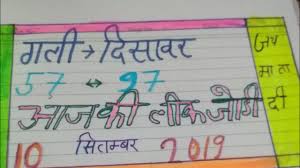 गली → दिसावर
57 ↔ 97
आज की लीक जोडी
10 सितम्बर 2019
जय
माता
दी